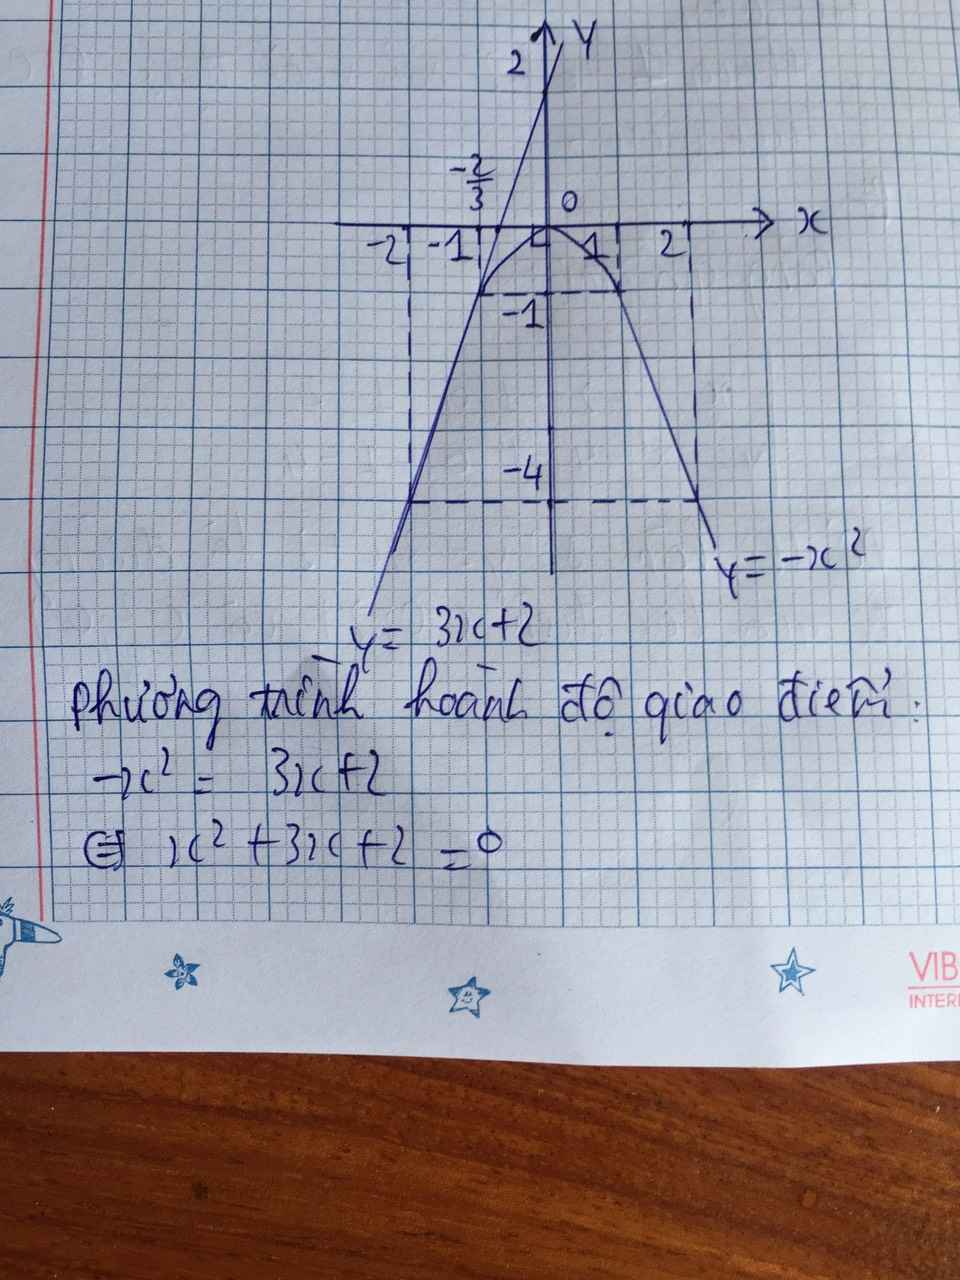 Y
2
-2/3
0
-2 -1 1 2 x
-1
-4
y = -x²
y = 3x+2
phương trình hoành độ giao điểm:
-x² = 3x+2
⇔ x² + 3x + 2 = 0
VIB
INTER